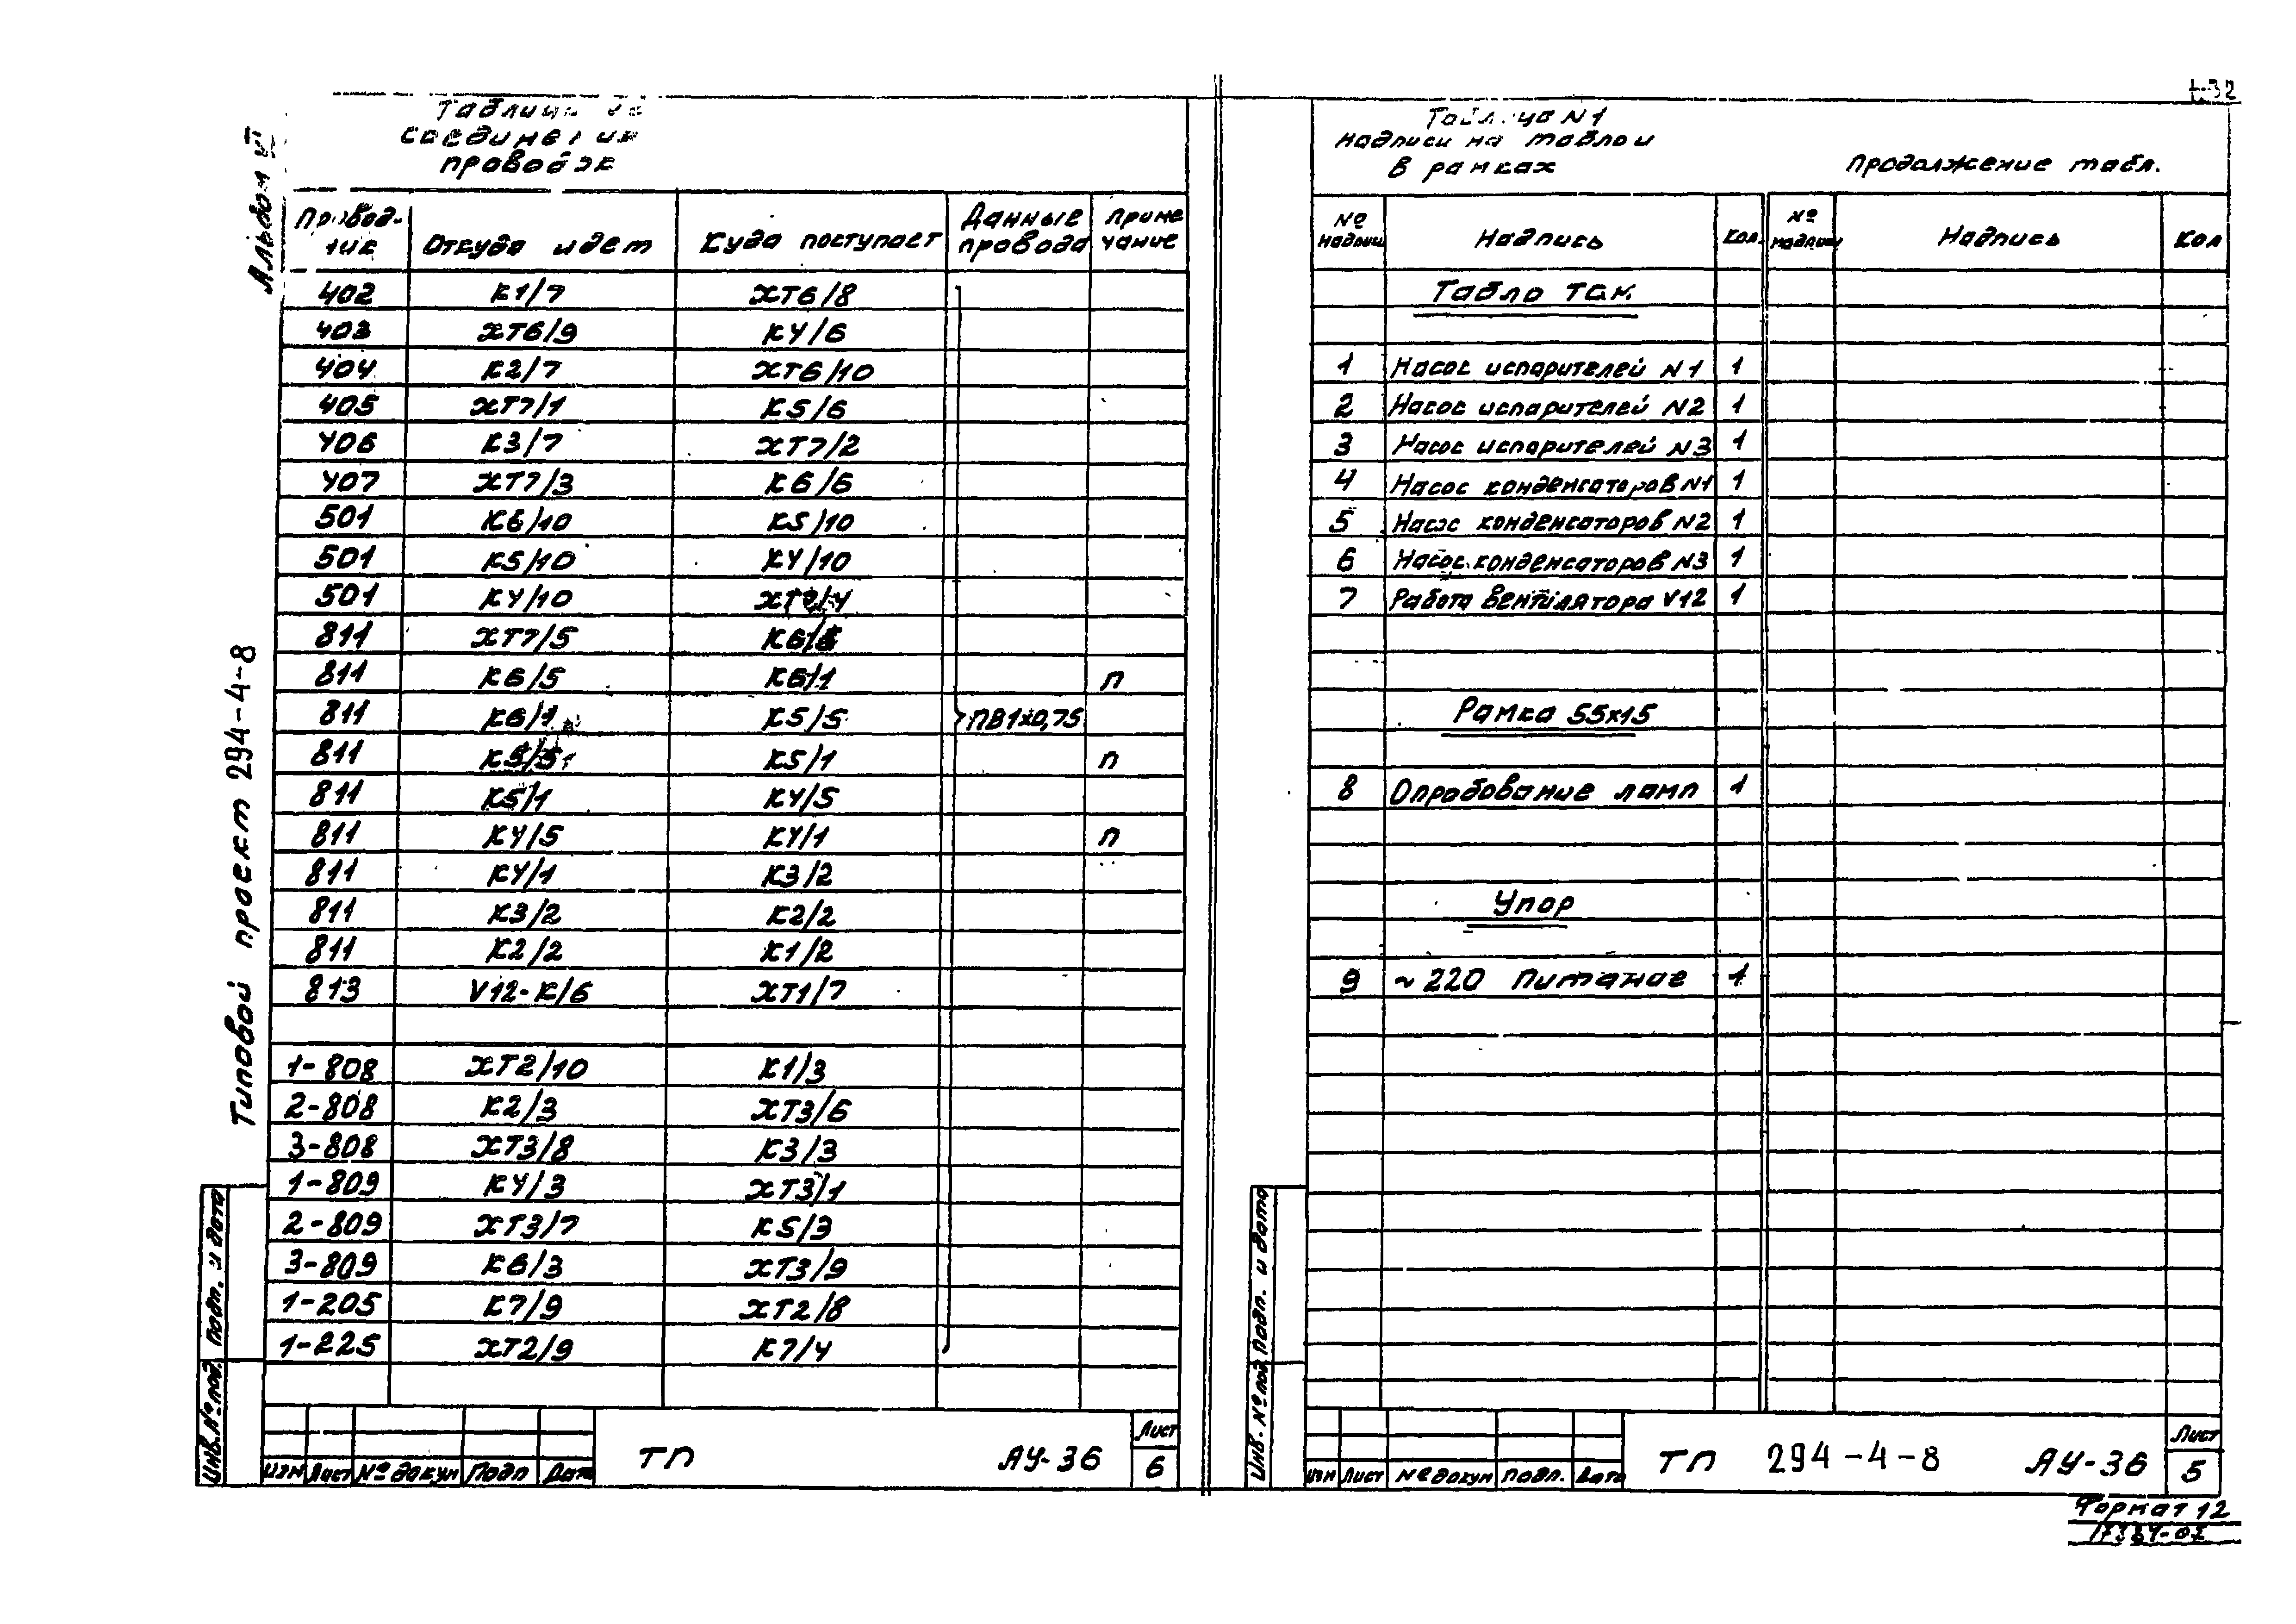 Альбом VI
Типовой проект 294-4-8
Таблица
соединения
проводок
Проводник Откуда идет Куда поступает Данные провода Примечание
402 К1/7 ХТ6/8
403 ХТ6/9 К4/6
404 К2/7 ХТ6/10
405 ХТ7/1 К5/6
406 К3/7 ХТ7/2
407 ХТ7/3 К6/6
501 К6/10 К5/10
501 К5/10 К4/10
501 К4/10 ХТ7/4
811 ХТ7/5 К6/5
811 К6/5 К6/1 п
811 К6/1 К5/5 ПВ1х0,75
811 К5/5 К5/1 п
811 К5/1 К4/5
811 К4/5 К4/1 п
811 К4/1 К3/2
811 К3/2 К2/2
811 К2/2 К1/2
813 V12-К/6 ХТ1/7
1-808 ХТ2/10 К1/3
2-808 К2/3 ХТ3/6
3-808 ХТ3/8 К3/3
1-809 К4/3 ХТ3/1
2-809 ХТ3/7 К5/3
3-809 К6/3 ХТ3/9
1-205 К7/9 ХТ2/8
1-225 ХТ2/9 К7/4
Инв.№ подл. Подп. и дата
Изм Лист № докум Подп Дата
ТП АУ-36
Лист
6
Таблица N1
надписи на табло и
в рамках
Продолжение табл.
№ надписи Надпись Кол. № надписи Надпись Кол
Табло ТСМ
1 Насос испарителей N1 1
2 Насос испарителей N2 1
3 Насос испарителей N3 1
4 Насос конденсаторов N1 1
5 Насос конденсаторов N2 1
6 Насос конденсаторов N3 1
7 Работа вентилятора V12 1
Рамка 55х15
8 Опробование ламп 1
Упор
9 ~220 Питание 1
Инв. № подл Подп. и дата
Изм Лист № докум Подп. Дата
ТП 294-4-8 АУ-36
Лист
5
Формат 12